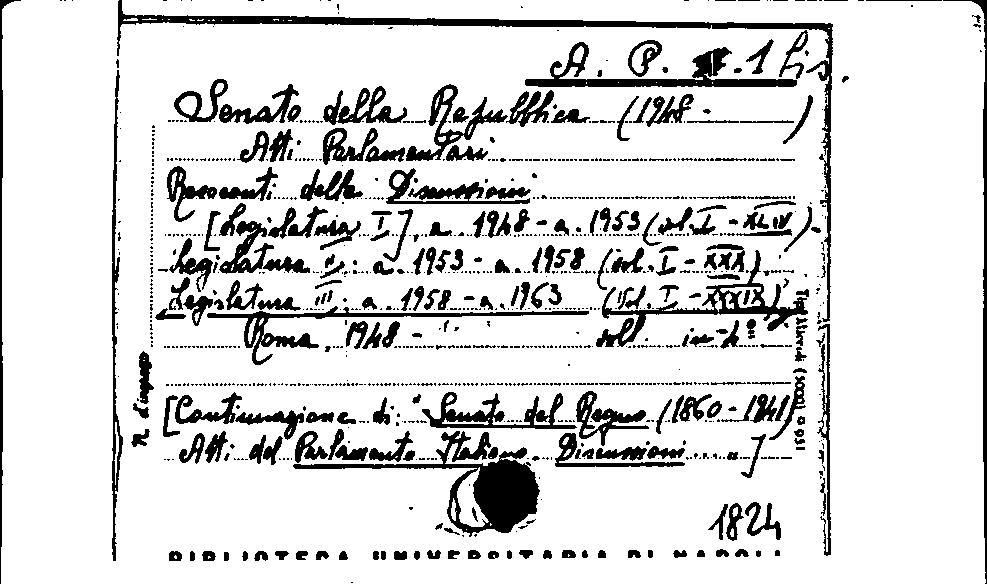 A. P. .1 Lis.
Senato della Repubblica (1948 - )
Atti Parlamentari.
Resoconti delle Discussioni.
[Legislatura I], a. 1948 - a. 1953 (vol. I - XLIV).
Legislatura II: a. 1953 - a. 1958 (vol. I - XXX).
Legislatura III: a. 1958 - a. 1963 (Vol. I - XXXIX)
Roma, 1948 - voll. in-4°
[Continuazione di: "Senato del Regno (1860 - 1941)
Atti del Parlamento Italiano. Discussioni... "]
1824
BIBLIOTECA UNIVERSITARIA DI NAPOLI
N. d'ingresso